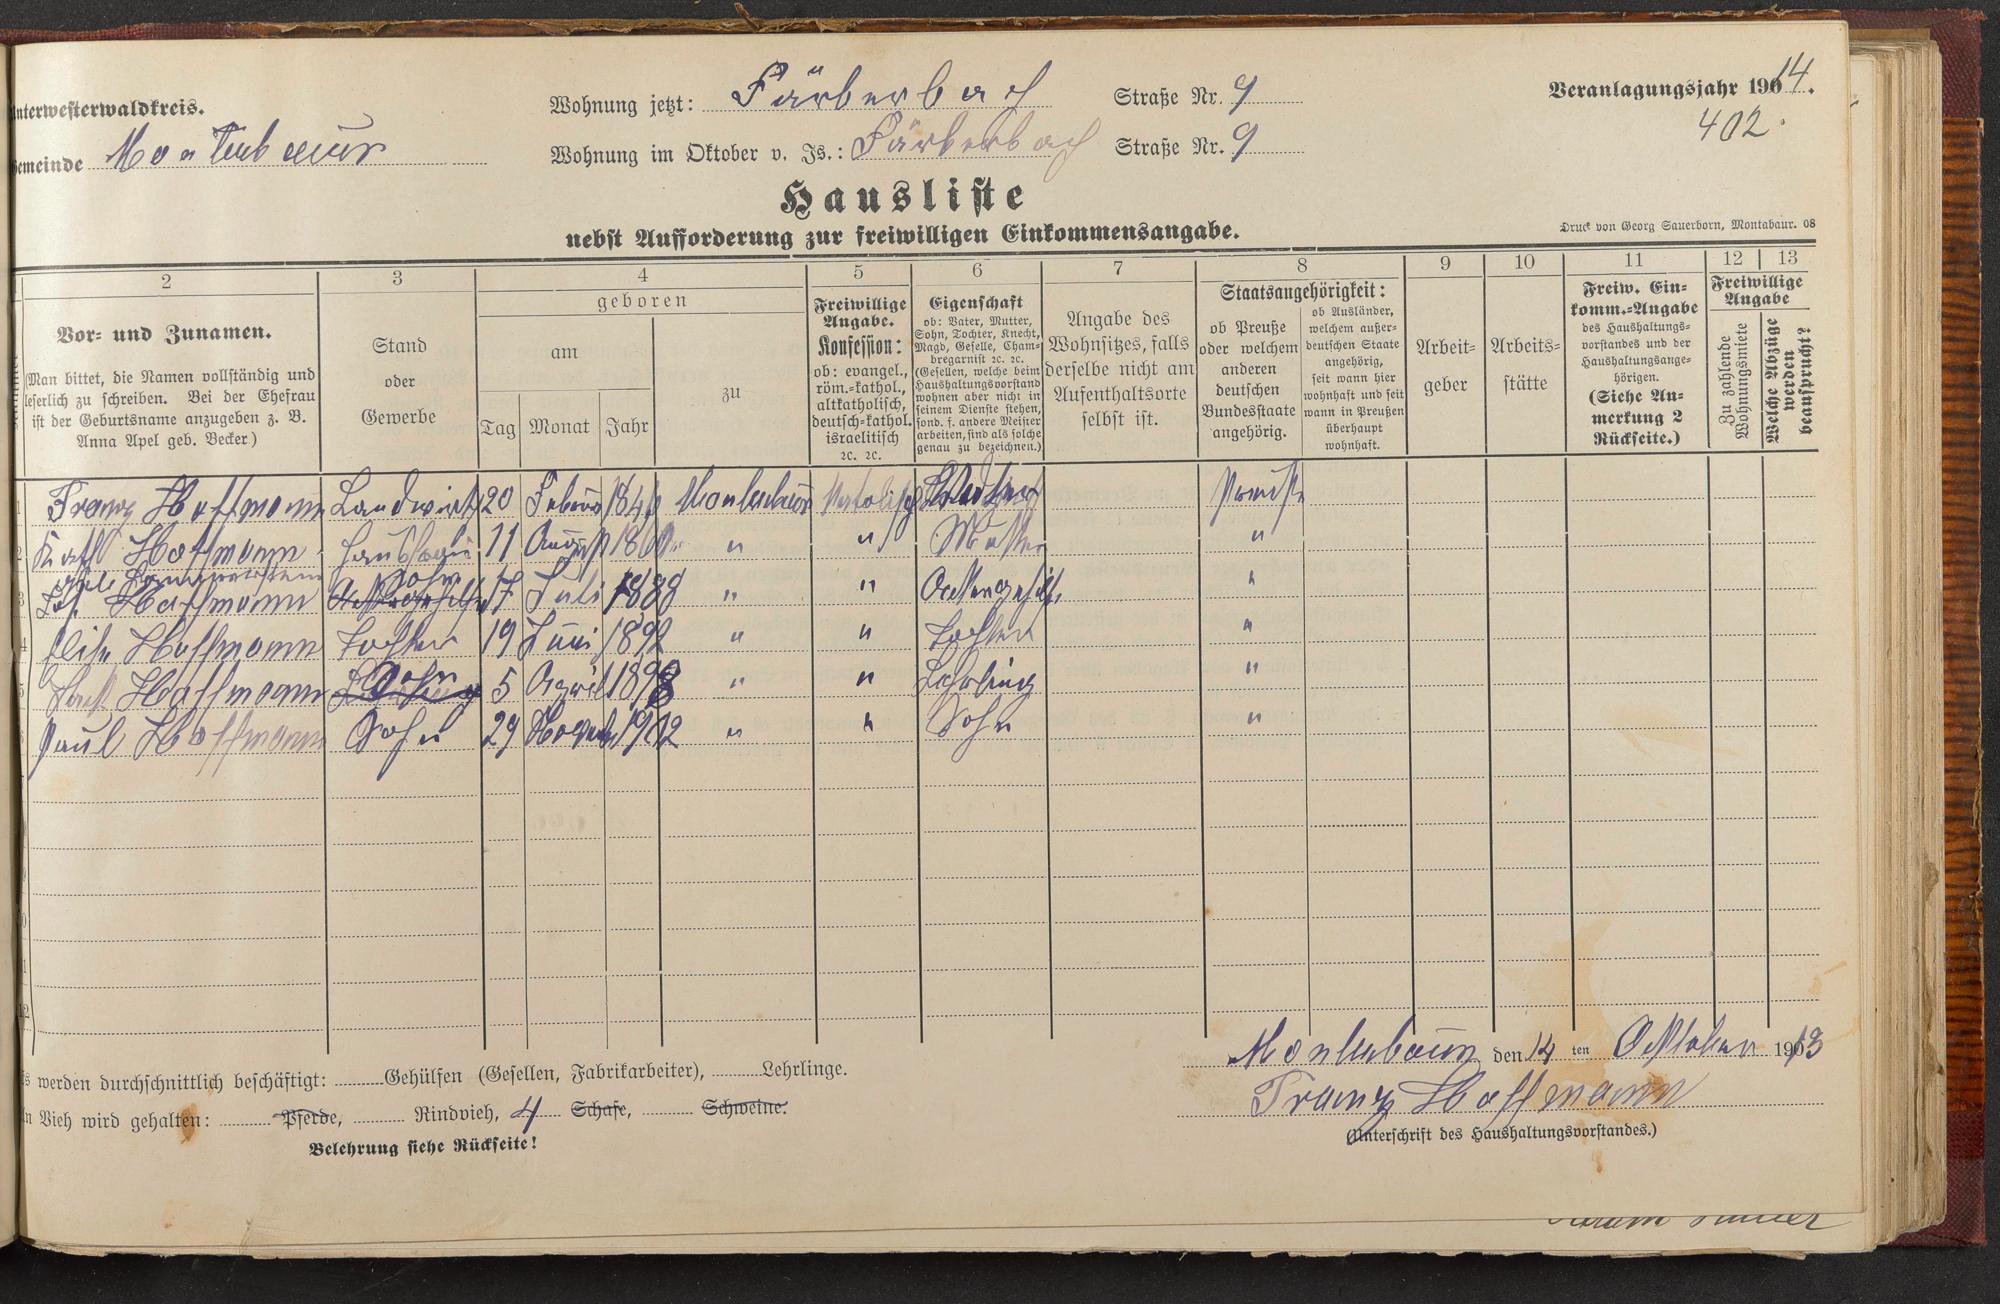 Unterwesterwaldkreis.
Gemeinde Montabaur
Wohnung jetzt: Färberbach Straße Nr. 9
Wohnung im Oktober v. Js.: Färberbach Straße Nr. 9
Veranlagungsjahr 1914.
402.
Hausliste
nebst Aufforderung zur freiwilligen Einkommensangabe.
Druck von Georg Sauerborn, Montabaur. 08
2 3 4 5 6 7 8 9 10 11 12 13
Vor- und Zunamen.
(Man bittet, die Namen vollständig und
leserlich zu schreiben. Bei der Ehefrau
ist der Geburtsname anzugeben z. B.
Anna Apel geb. Becker.)
Stand
oder
Gewerbe
geboren
am
Tag Monat Jahr
zu
Freiwillige
Angabe.
Konfession:
ob: evangel.,
röm.-kathol.,
altkatholisch,
deutsch-kathol.
israelitisch
ꝛc. ꝛc.
Eigenschaft
ob: Vater, Mutter,
Sohn, Tochter, Knecht,
Magd, Geselle, Cham-
bregarnist ꝛc. ꝛc.
(Gesellen, welche beim
Haushaltungsvorstand
wohnen aber nicht in
seinem Dienste stehen,
sond. f. andere Meister
arbeiten, sind als solche
genau zu bezeichnen.)
Angabe des
Wohnsitzes, falls
derselbe nicht am
Aufenthaltsorte
selbst ist.
Staatsangehörigkeit:
ob Preuße
oder welchem
anderen
deutschen
Bundesstaate
angehörig.
ob Ausländer,
welchem außer-
deutschen Staate
angehörig,
seit wann hier
wohnhaft und seit
wann in Preußen
überhaupt
wohnhaft.
Arbeit-
geber
Arbeits-
stätte
Freiw. Ein-
komm.-Angabe
des Haushaltungs-
vorstandes und der
Haushaltungsange-
hörigen.
(Siehe An-
merkung 2
Rückseite.)
Freiwillige
Angabe
Zu zahlende
Wohnungsmiete
Welche Abzüge
werden
beansprucht?
1 Franz Hoffmann Landwirt 20 Februar Montabaur Katholisch Vater Preuße
2 Kath Hoffmann 11 August " " Mutter "
geb.
3 Joh. Hoffmann Sohn 17 Juli 1888 " " Ackergehilfe "
4 Elise Hoffmann Tochter 19 Juni 1892 " " Tochter "
5 Hoffmann Sohn 5 April 1898 " " Lehrling "
6 Paul Hoffmann Sohn 29 Novemb 1902 " " Sohn "
Es werden durchschnittlich beschäftigt: Gehülfen (Gesellen, Fabrikarbeiter), Lehrlinge.
An Vieh wird gehalten: Pferde, Rindvieh, 4 Schafe, Schweine.
Belehrung siehe Rückseite!
Montabaur den 14 ten Oktober 1913
Franz Hoffmann
(Unterschrift des Haushaltungsvorstandes.)